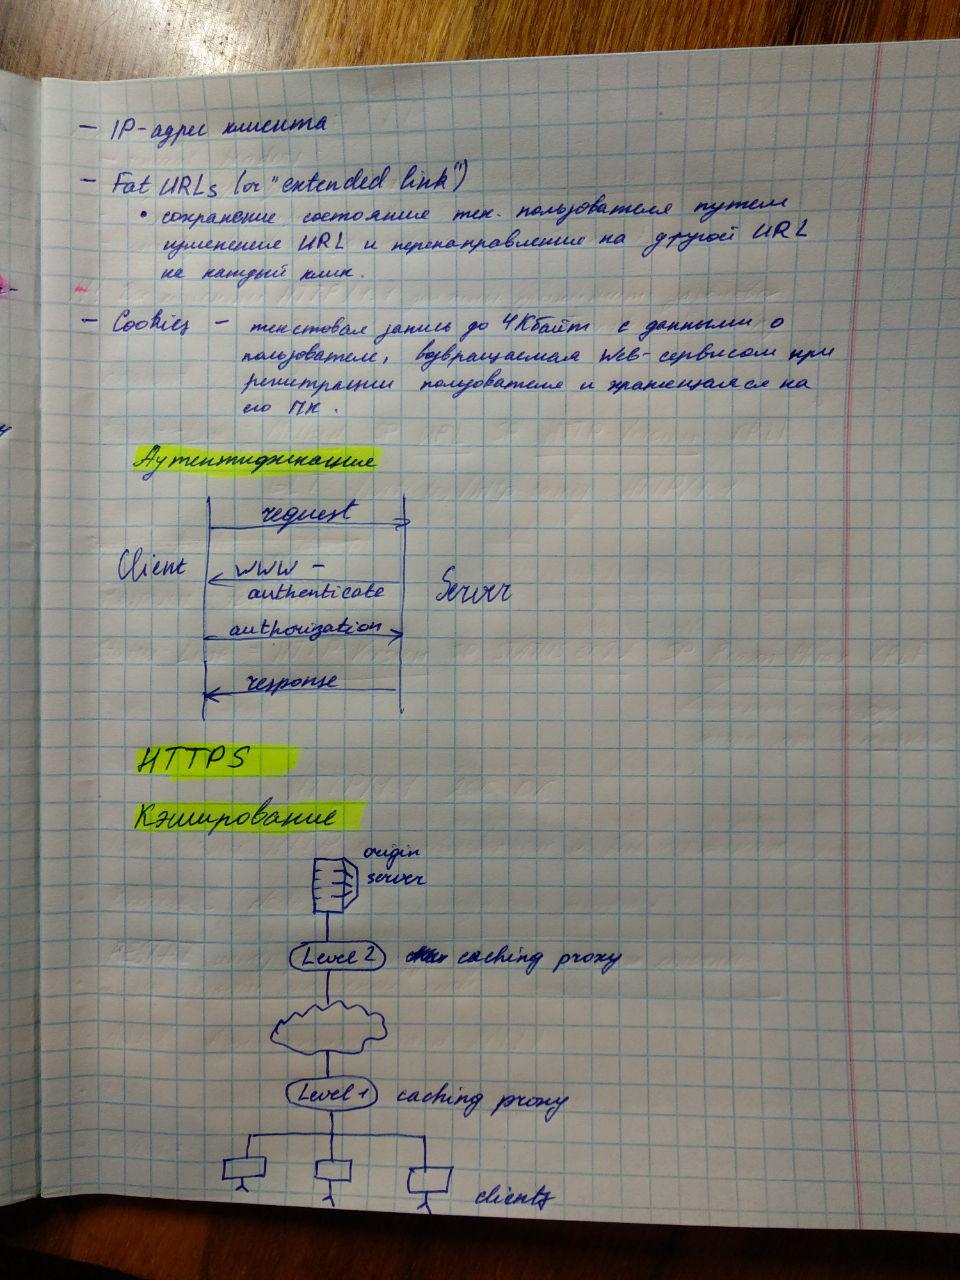 — IP-адрес клиента
— Fat URLs (or "extended link")
• сохранение состояния тек. пользователя путем
изменения URL и перенаправления на другой URL
на каждый клик.
— Cookies — текстовая запись до 4Кбайт с данными о
пользователе, возвращаемая Web-сервисом при
регистрации пользователя и хранящаяся на
его ПК.
Аутентификация
request
Client
www –
authenticate
Server
authorization
response
HTTPS
Кэширование
origin
server
Level 2 caching proxy
Level 1 caching proxy
clients